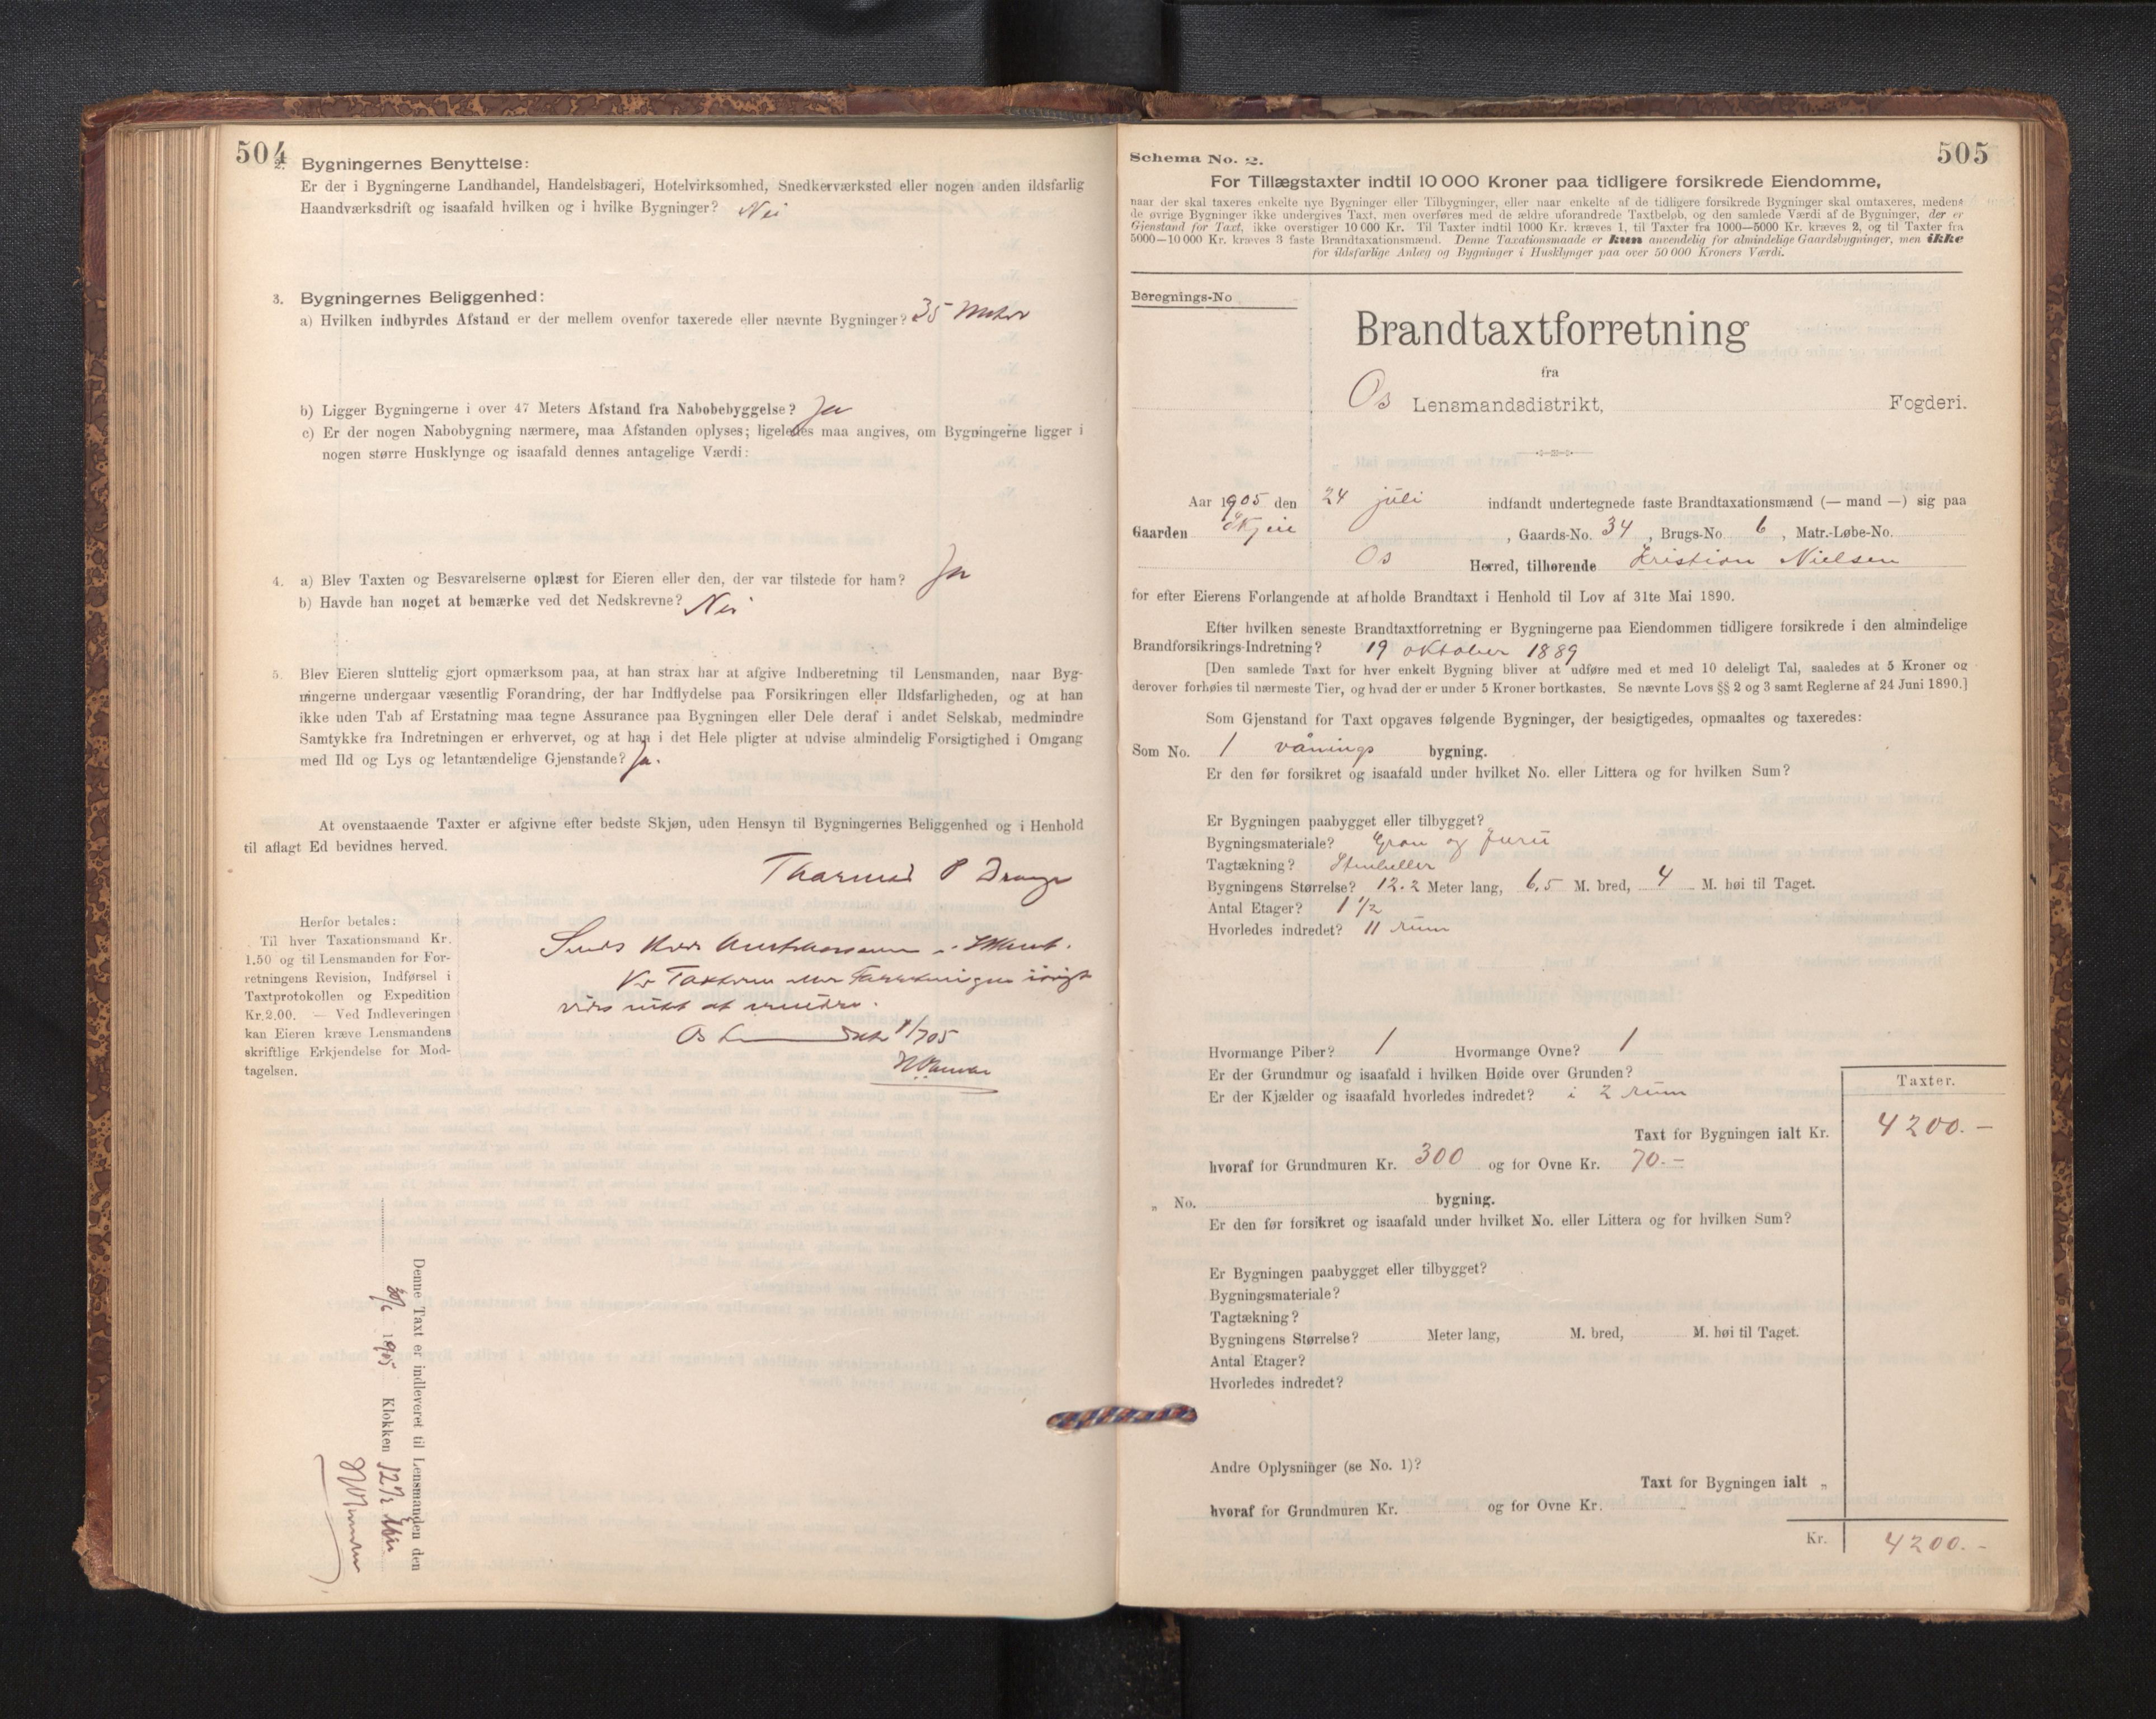 504
2. Bygningernes Benyttelse:
Er der i Bygningerne Landhandel, Handelsbageri, Hotelvirksomhed, Snedkerværksted eller nogen anden ildsfarlig
Haandværksdrift og isaafald hvilken og i hvilke Bygninger? Nei
3. Bygningernes Beliggenhed:
a) Hvilken indbyrdes Afstand er der mellem ovenfor taxerede eller nævnte Bygninger? 35 Meter
b) Ligger Bygningerne i over 47 Meters Afstand fra Nabobebyggelse? Ja
c) Er der nogen Nabobygning nærmere, maa Afstanden oplyses; ligeledes maa angives, om Bygningerne ligger i
nogen større Husklynge og isaafald dennes antagelige Værdi:
4. a) Blev Taxten og Besvarelserne oplæst for Eieren eller den, der var tilstede for ham? Ja
b) Havde han noget at bemærke ved det Nedskrevne? Nei
5. Blev Eieren sluttelig gjort opmærksom paa, at han strax har at afgive Indberetning til Lensmanden, naar Byg-
ningerne undergaar væsentlig Forandring, der har Indflydelse paa Forsikringen eller Ildsfarligheden, og at han
ikke uden Tab af Erstatning maa tegne Assurance paa Bygningen eller Dele deraf i andet Selskab, medmindre
Samtykke fra Indretningen er erhvervet, og at han i det Hele pligter at udvise almindelig Forsigtighed i Omgang
med Ild og Lys og letantændelige Gjenstande? Ja.
At ovenstaaende Taxter er afgivne efter bedste Skjøn, uden Hensyn til Bygningernes Beliggenhed og i Henhold
til aflagt Ed bevidnes herved.
P Drange
Herfor betales:
Til hver Taxationsmand Kr.
1.50 og til Lensmanden for For-
retningens Revision, Indførsel i
Taxtprotokollen og Expedition
Kr. 2.00. — Ved Indleveringen
kan Eieren kræve Lensmandens
skriftlige Erkjendelse for Mod-
tagelsen.
Ved Taxterne eller Forretningen iøvrigt
vides intet at erindre.
Os
Denne Taxt er indleveret til Lensmanden den
30/6 1905 Klokken 12 1/2
505
Schema No. 2.
For Tillægstaxter indtil 10 000 Kroner paa tidligere forsikrede Eiendomme,
naar der skal taxeres enkelte nye Bygninger eller Tilbygninger, eller naar enkelte af de tidligere forsikrede Bygninger skal omtaxeres, medens
de øvrige Bygninger ikke undergives Taxt, men overføres med de ældre uforandrede Taxtbeløb, og den samlede Værdi af de Bygninger, der er
Gjenstand for Taxt, ikke overstiger 10 000 Kr. Til Taxter indtil 1000 Kr. kræves 1, til Taxter fra 1000—5000 Kr. kræves 2, og til Taxter fra
5000—10 000 Kr. kræves 3 faste Brandtaxationsmænd. Denne Taxationsmaade er kun anvendelig for almindelige Gaardsbygninger, men ikke
for ildsfarlige Anlæg og Bygninger i Husklynger paa over 50 000 Kroners Værdi.
Beregnings-No
Brandtaxtforretning
fra
Os Lensmandsdistrikt, Fogderi.
Aar 1905 den 24 juli indfandt undertegnede faste Brandtaxationsmænd (— mand —) sig paa
Gaarden Skjeie, Gaards-No. 34, Brugs-No 6, Matr.-Løbe-No.
Os Herred, tilhørende Kristian Nielsen
for efter Eierens Forlangende at afholde Brandtaxt i Henhold til Lov af 31te Mai 1890.
Efter hvilken seneste Brandtaxtforretning er Bygningerne paa Eiendommen tidligere forsikrede i den almindelige
Brandforsikrings-Indretning? 19 oktober 1889
[Den samlede Taxt for hver enkelt Bygning bliver at udføre med et med 10 deleligt Tal, saaledes at 5 Kroner og
derover forhøies til nærmeste Tier, og hvad der er under 5 Kroner bortkastes. Se nævnte Lovs §§ 2 og 3 samt Reglerne af 24 Juni 1890.]
Som Gjenstand for Taxt opgaves følgende Bygninger, der besigtigedes, opmaaltes og taxeredes:
Som No. 1 vånings bygning.
Er den før forsikret og isaafald under hvilket No. eller Littera og for hvilken Sum?
Er Bygningen paabygget eller tilbygget?
Bygningsmateriale? Gran og furu
Tagtækning? Stenheller
Bygningens Størrelse? 12.2 Meter lang, 6,5 M. bred, 4 M. høi til Taget.
Antal Etager? 1 1/2
Hvorledes indredet? 11 rum
Hvormange Piber? 1 Hvormange Ovne? 1
Er der Grundmur og isaafald i hvilken Høide over Grunden?
Er der Kjælder og isaafald hvorledes indredet? i 2 rum
Taxter.
Taxt for Bygningen ialt Kr. 4200.—
hvoraf for Grundmuren Kr. 300 og for Ovne Kr. 70.—
„ No. bygning.
Er den før forsikret og isaafald under hvilket No. eller Littera og for hvilken Sum?
Er Bygningen paabygget eller tilbygget?
Bygningsmateriale?
Tagtækning?
Bygningens Størrelse? Meter lang, M. bred, M. høi til Taget.
Antal Etager?
Hvorledes indredet?
Andre Oplysninger (se No. 1)?
Taxt for Bygningen ialt „
hvoraf for Grundmuren Kr. og for Ovne Kr.
Kr. 4200.-